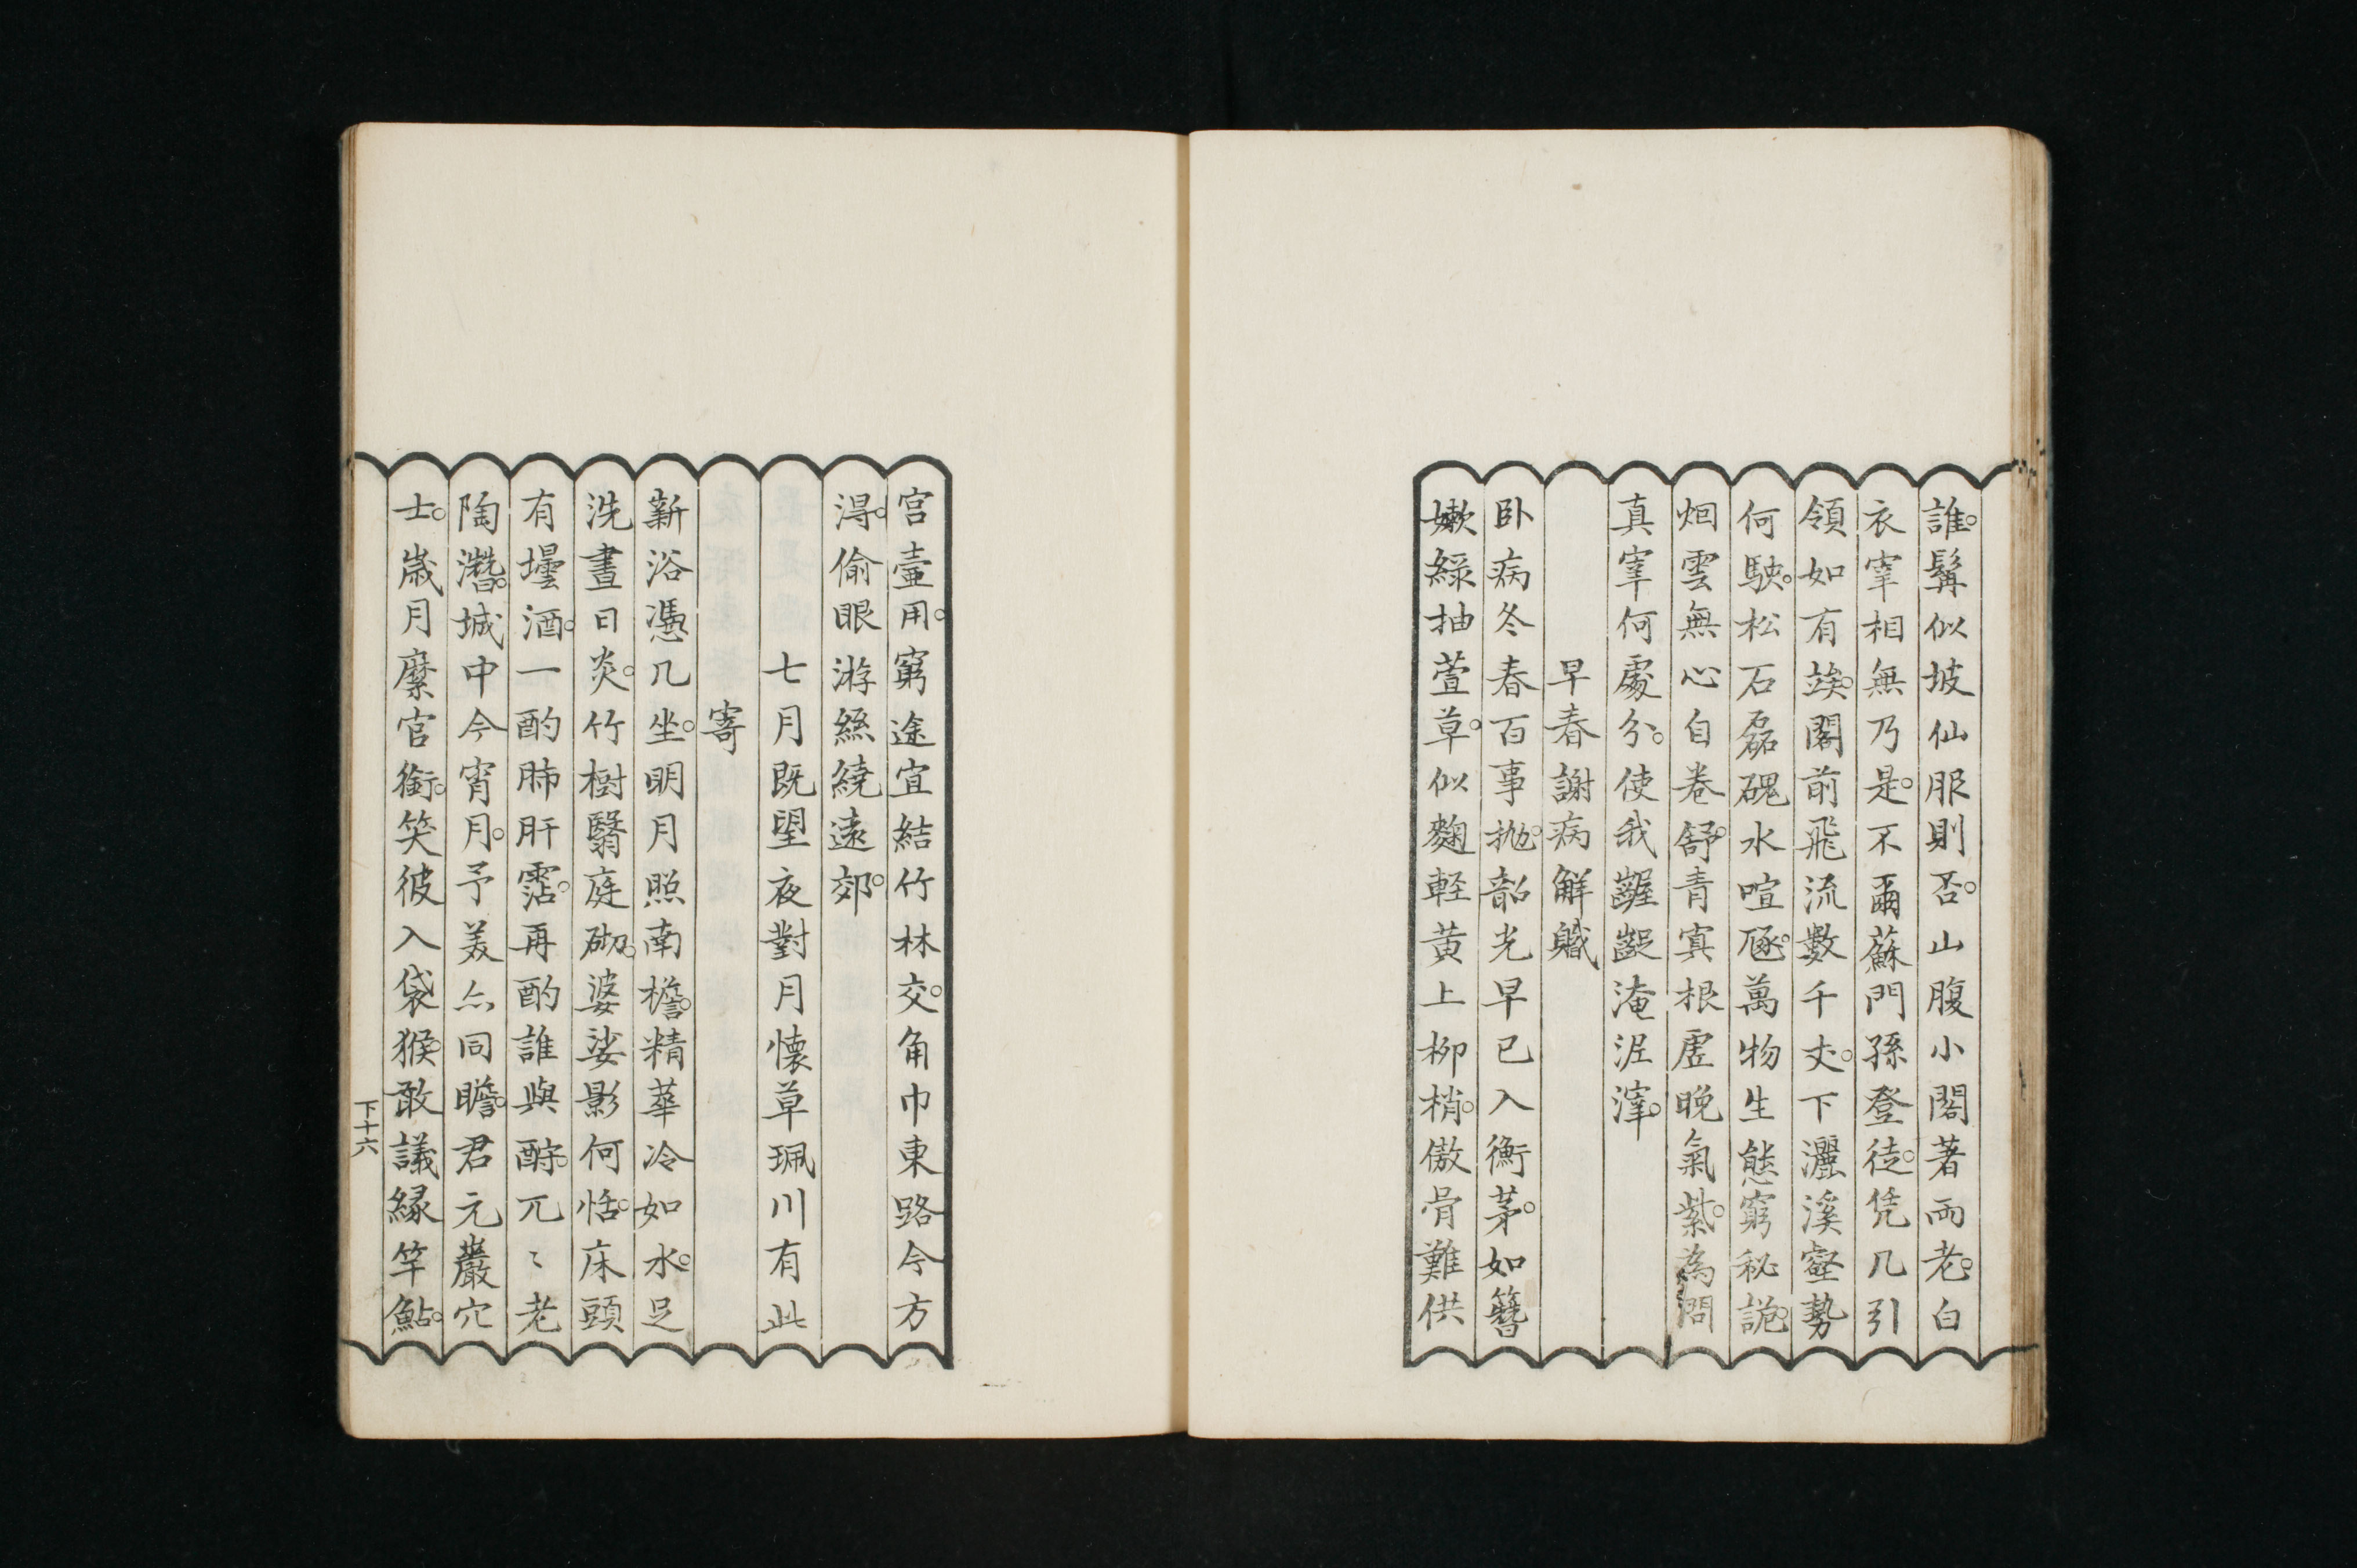 誰。髯似坡仙服則否。山腹小閣著両老。白
衣宰相無乃是。不爾蘇門孫登徒。凭几引
領如有竢。閣前飛流數千丈。下灑溪壑勢
何駛。松石磊磈水喧豗。萬物生態窮秘詭。
烟雲無心自卷舒。青冥根虛晚氣紫。為問
真宰何處分。使我齷齪淹泥滓。
早春謝病解職
卧病冬春百事抛。韶光早已入衡茅。如簪
嫩綠抽萱草。似麴軽黃上柳梢。傲骨難供
宮壼用。窮途宜結竹林交。角巾東路今方
淂。偷眼游絲繞遠郊。
七月既望夜對月懷草珮川有此
寄
新浴憑几坐。明月照南檐。精華冷如水。足
洗晝日炎。竹樹翳庭砌。婆娑影何恬。床頭
有壜酒。一酌肺肝霑。再酌誰與酧。兀〻老
陶潛。城中今宵月。予美亦同瞻。君元巖穴
士。嵗月縻官銜。笑彼入袋猴。敢議緣竿鮎。
下十六